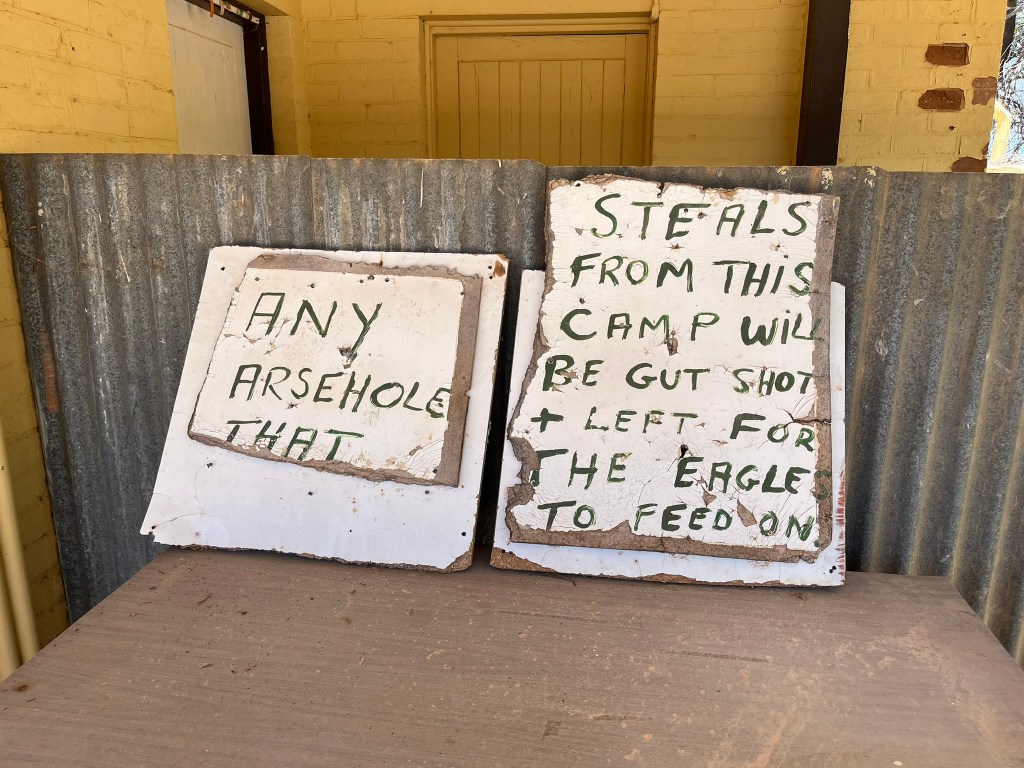 ANY
ARSEHOLE
THAT
STEALS
FROM THIS
CAMP WILL
BE GUT SHOT
+ LEFT FOR
THE EAGLES
TO FEED ON.